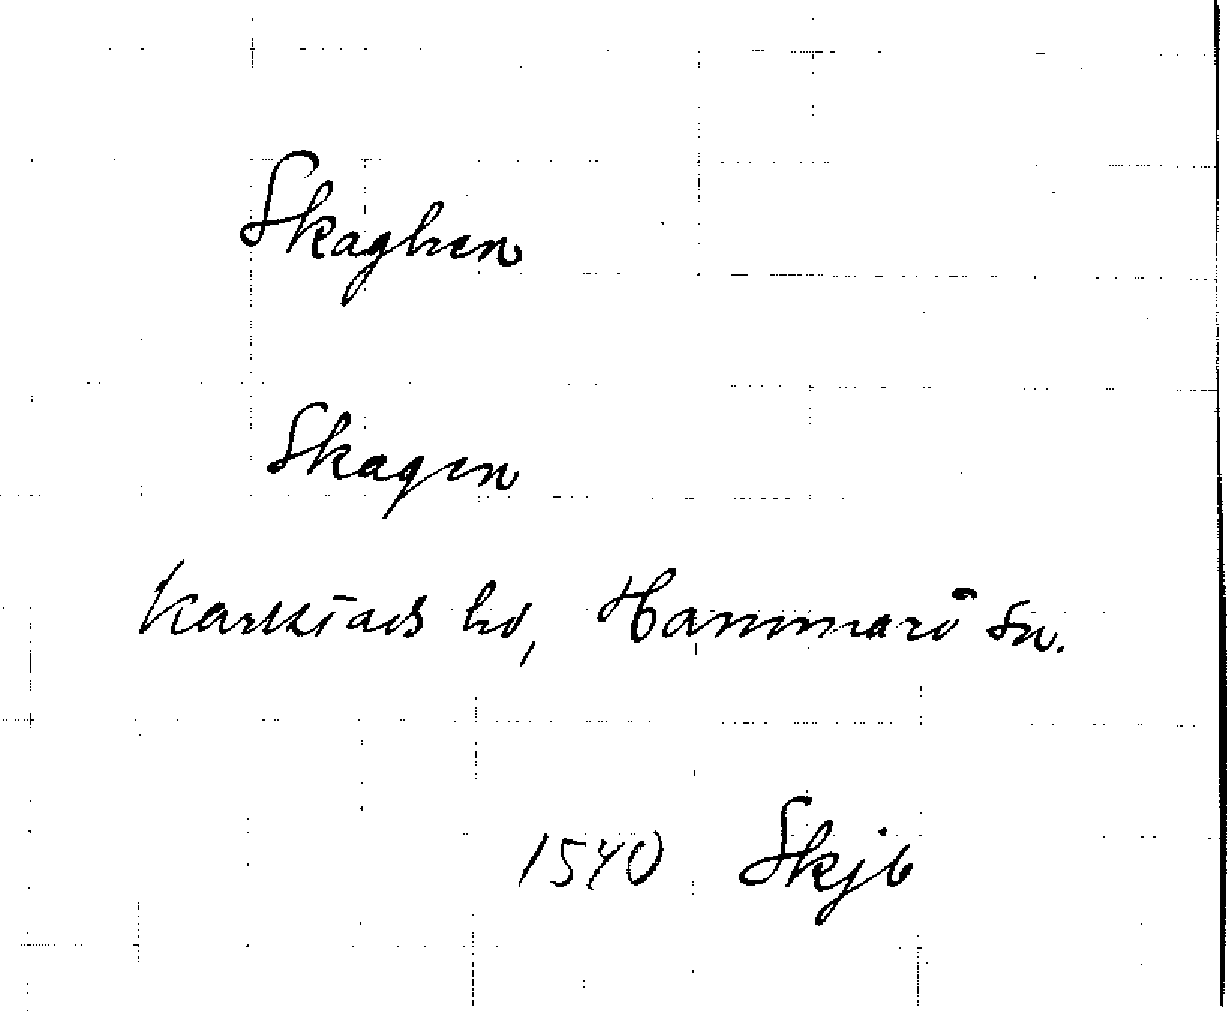 Skaghen
Skagen
Karlstads hd, Hammarö sn.
1540 Skjb